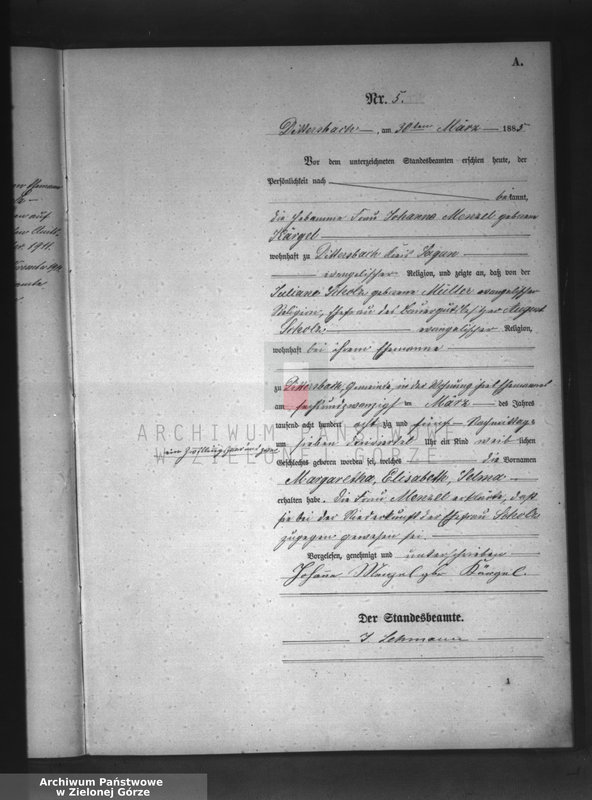 A.
Nr. 5.
Dittersbach, am 30ten März 1885
Vor dem unterzeichneten Standesbeamten erschien heute, der
Persönlichkeit nach
bekannt,
die Hebamme Frau Johanna Menzel geborene
Kärgel
wohnhaft zu Dittersbach Kreis Sagan
evangelischer Religion, und zeigte an, daß von der
Juliane Scholz geborene Müller evangelischer
Religion, Ehefrau des Bauergutsbesitzer August
Scholz evangelischer Religion,
wohnhaft bei ihrem Ehemanne
zu Dittersbach, Gemeinde, in der Wohnung ihres Ehemannes
am sechsundzwanzigsten März des Jahres
tausend acht hundert achtzig und fünf Nachmittags
um sieben Uhr ein Kind weiblichen
Geschlechts geboren worden sei, welches die Vornamen
Margaretha, Elisabeth, Selma
erhalten habe. Die Frau Menzel erklärte, daß
sie bei der Niederkunft der Ehefrau Scholz
zugegen gewesen sei.
Vorgelesen, genehmigt und unterschrieben
Johanna Menzel geb Kärgel.
Der Standesbeamte.
J. Lehmann
1
ARCHIWUM PAŃSTWOWE
W ZIELONEJ GÓRZE
Archiwum Państwowe
w Zielonej Górze